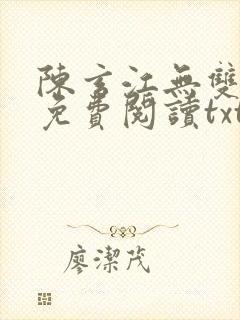 陳玄江無雙
免費閱讀txt
廖潔茂